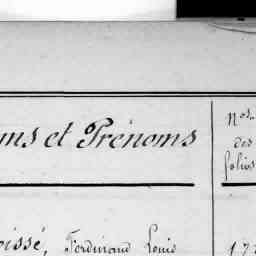 ms et Prénoms
Nos.
des
folios
oissé, Ferdinand Louis